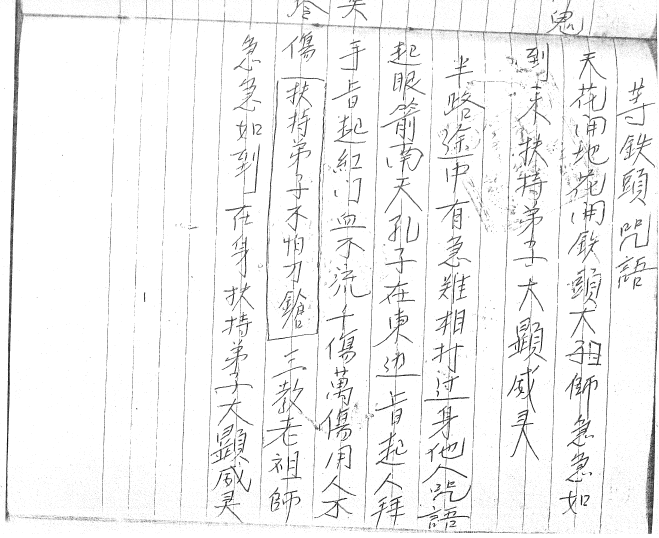 鬼
等鉄頭咒語
天花開地花開鉄頭大祖師急急如
到來扶持弟子大顯威灵
半路途中有急難相打过身他人咒語
起眼箭南天孔子在東边旨起人拜
手旨起紅门血不流千傷萬傷用人不
傷扶持弟子不怕刀鎗三教老祖師
急急如到在身扶持弟子大顯威灵